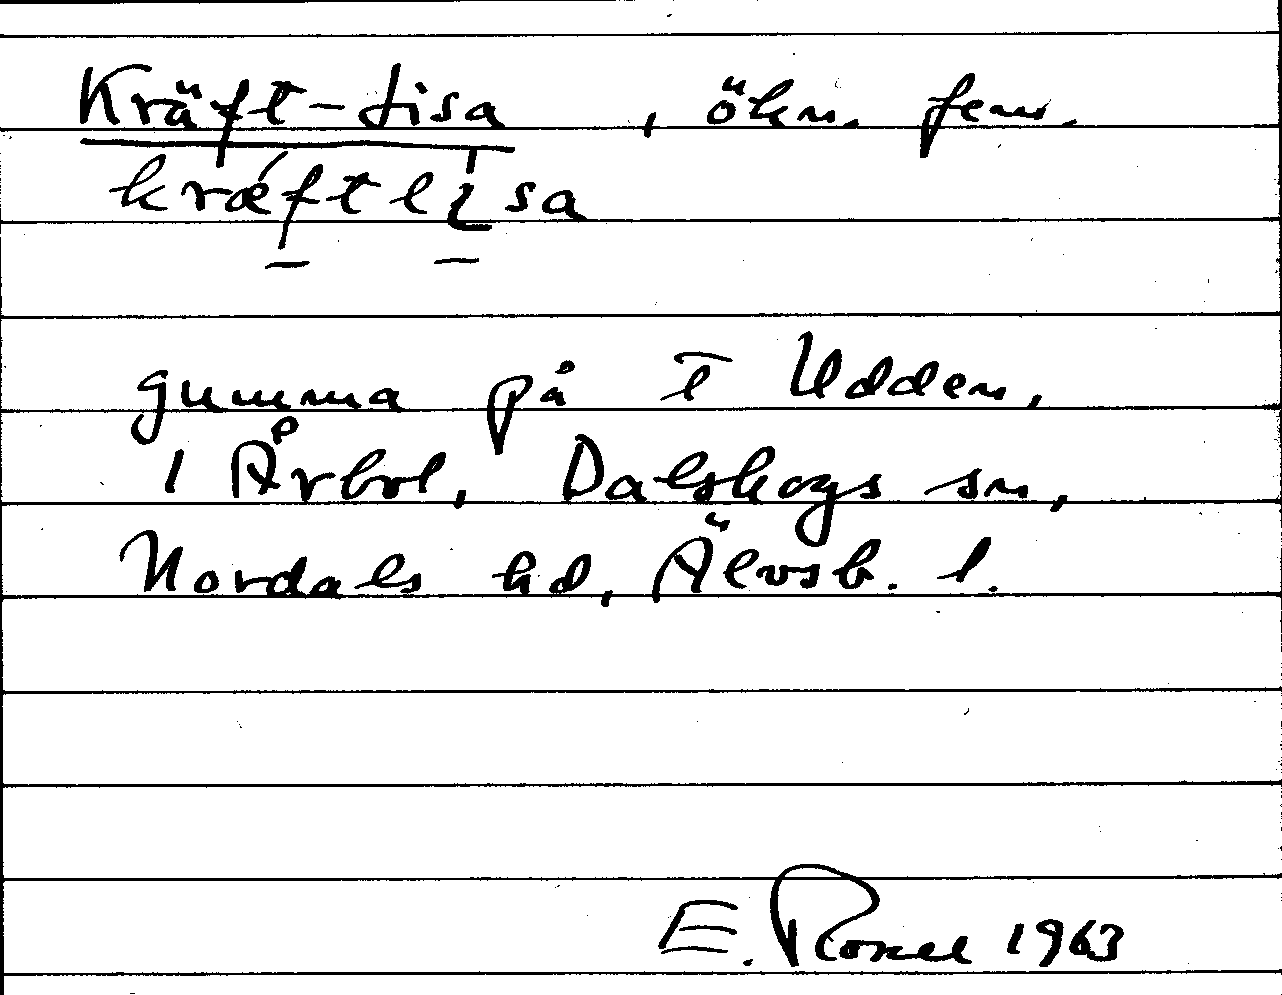 Kräft-Lisa, ökn. fem.
kræftlisa
gumma på t Udden,
i Årbol, Dalskogs sn,
Nordals hd, Älvsb. l.
E. 1963